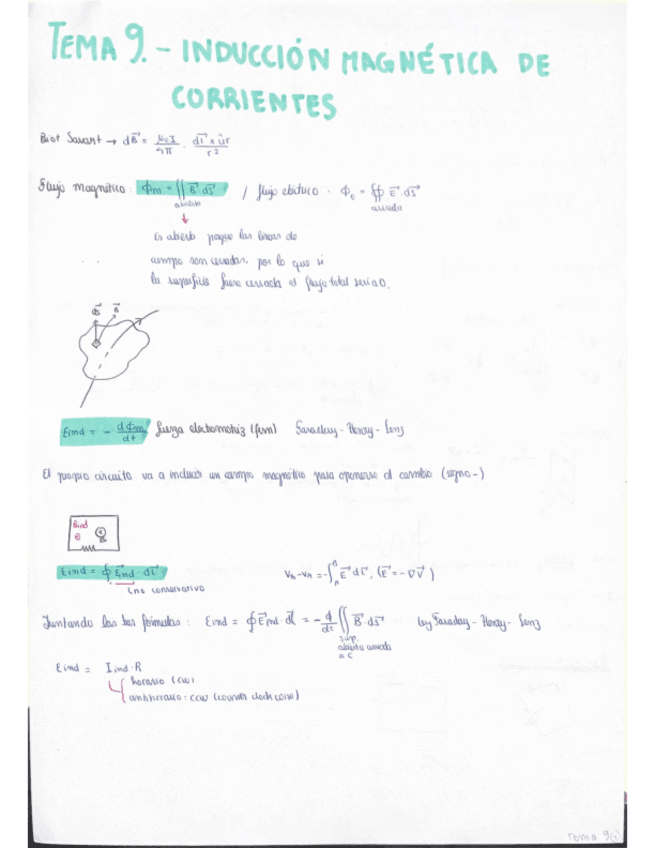 TEMA 9.- INDUCCIÓN MAGNÉTICA DE
CORRIENTES
Biot Savart → dB⃗ = μ₀I/4π · dl⃗ x ûr/r²
Flujo magnético: ϕm = ∬ B⃗·ds⃗ / flujo eléctrico · ϕE = ∯ E⃗·ds⃗
abierta cerrada
↓
Es abierto porque las líneas de
campo son cerradas, por lo que si
la superficie fuera cerrada el flujo total sería 0.
ds⃗ B⃗
Eind = - dϕm/dt fuerza electromotriz (fem) Faraday - Henry - Lenz
El propio circuito va a inducir un campo magnético para oponerse al cambio (signo -)
Bind
Eind = ∮ E⃗ind · dl⃗ VB-VA = -∫ₐᴮ E⃗ dl⃗, (E⃗ = -∇V⃗)
(no conservativo
Juntando las dos fórmulas: Eind = ∮ E⃗ind · dl⃗ = - d/dt ∬ B⃗·ds⃗ ley Faraday - Henry - Lenz
sup.
abierta
a C
Eind = Iind·R
horario (cw)
antihorario: ccw (counter clock wise)
Tema 9(1)